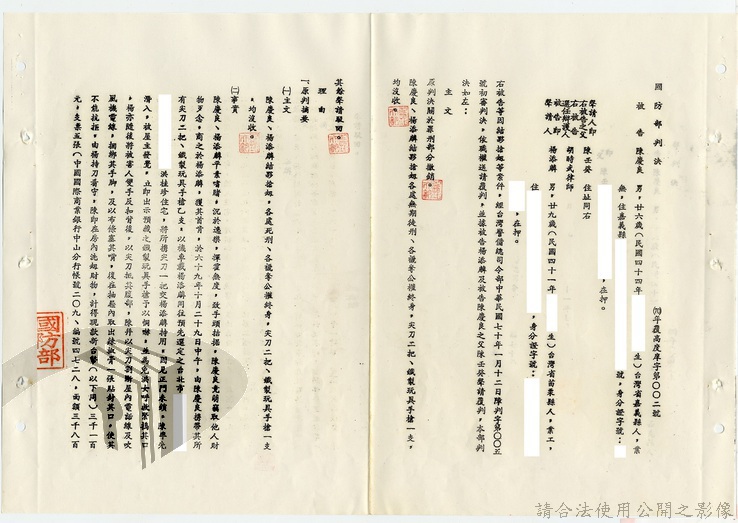 國防部判決
(70)年覆高度庠字第〇〇二號
被告 陳慶良 男,廿六歲(民國四十四年 生)台灣省嘉義縣人,業
無,住嘉義縣 號,身分證字號:
,在押。
聲請人即
右被告之父 陳壬癸 住址同右
右被告
選任辯護人 胡時武律師
被告即
聲請人 楊添麟 男,廿九歲(民國四十一年 生)台灣省苗栗縣人,業工,
住 ,身分證字號:
,在押。
右被告等因結夥搶刼等案件,經台灣警備總司令部中華民國七十年一月十二日判字第〇〇五
號初審判決,依職權送請覆判,並據被告楊添麟及被告陳慶良之父陳壬癸聲請覆判,本部判
決如左:
主文
原判決關於罪刑部分撤銷。
陳慶良、楊添麟結夥搶刼,各處無期徒刑、各褫奪公權終身,尖刀二把、鐵製玩具手槍一支,
均沒收。
其餘聲請駁回。
理由
一、原判摘要
(一)主文
陳慶良、楊添麟結夥搶刼,各處死刑、各褫奪公權終身,尖刀二把、鐵製玩具手槍一支
,均沒收。
(二)事實
陳慶良、楊添麟平素嗜賭,沉於逸樂,揮霍無度,致手頭拮据,陳慶良竟萌竊取他人財
物歹念,商之於楊添麟,獲其首肯,於六十九年十月二十九日中午,由陳慶良携帶其所
有尖刀二把、鐵製玩具手槍乙支,以機車載楊添麟同往預先選定之台北市
洪桂珍住宅,將所携尖刀一把交楊添麟持用,因見正門未鎖,陳舉先
潛入,被屋主發覺,立即出示預藏之鐵製玩具手槍予以恫嚇,並為免洪大呼救緊摀其口
,楊亦隨後將被害人雙手反扣背後,以尖刀抵其腹部,陳并以尖刀割斷屋內電話線及吹
風機電線,捆綁其手脚,及以布條塞其嘴,復在抽屜內取出絲襪膏一張貼封其口,使其
不能抗拒,由楊持刀看守,陳即在房內洗刼財物,計得現款新台幣(以下同)三千一百
元,支票五張(中國國際商業銀行中山分行帳號二〇九八號編號四七二八,面額三千八百
國防部
請合法使用公開之影像